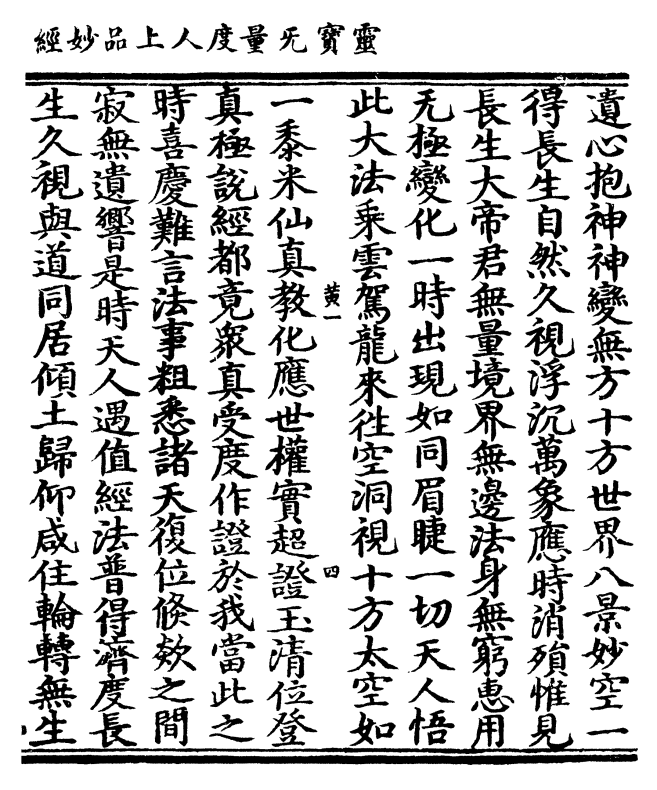 靈寶无量度人上品妙經
遺心抱神神變無方十方世界八景妙空一
得長生自然久視浮沉萬象應時消殞惟見
長生大帝君無量境界無邊法身無窮恵用
无極變化一時出現如同眉睫一切天人悟
此大法乘雲駕龍來往空洞視十方太空如
黄一
四
一黍米仙真教化應世權實超證玉清位登
真極說經都竟衆真受度作證於我當此之
時喜慶難言法事粗悉諸天復位倐欻之間
寂無遺響是時天人遇值經法普得濟度長
生久視與道同居傾土歸仰咸住輪轉無生